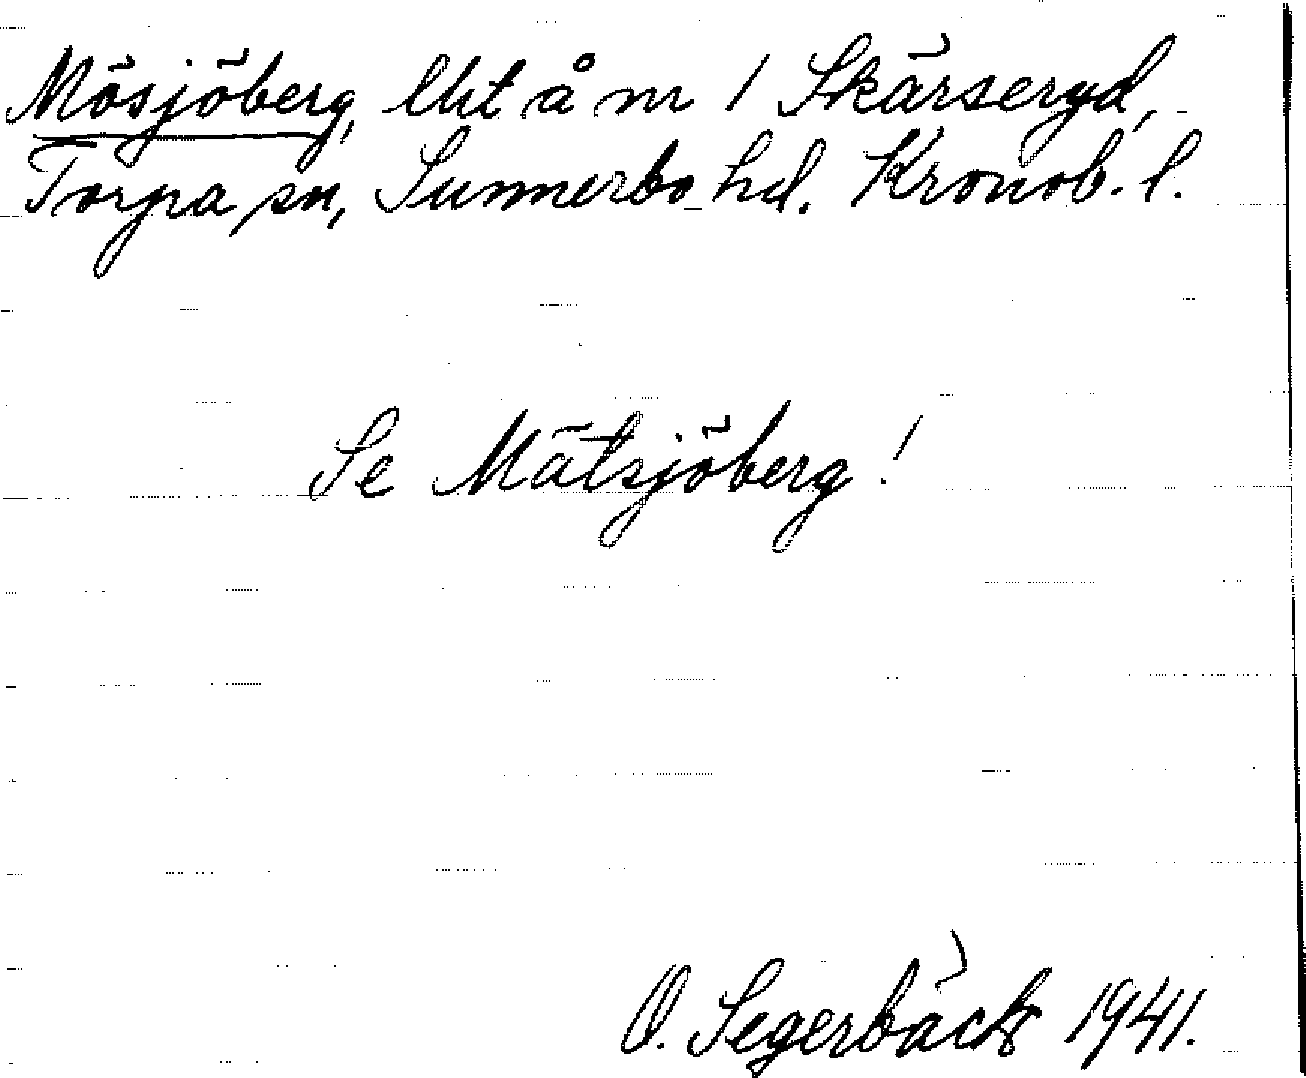 Mösjöberg, lht å nr 1 Skärseryd,
Torpa sn, Sunnerbo hd. Kronob. l.
Se Mätsjöberg!
O. Segerbäck 1941.